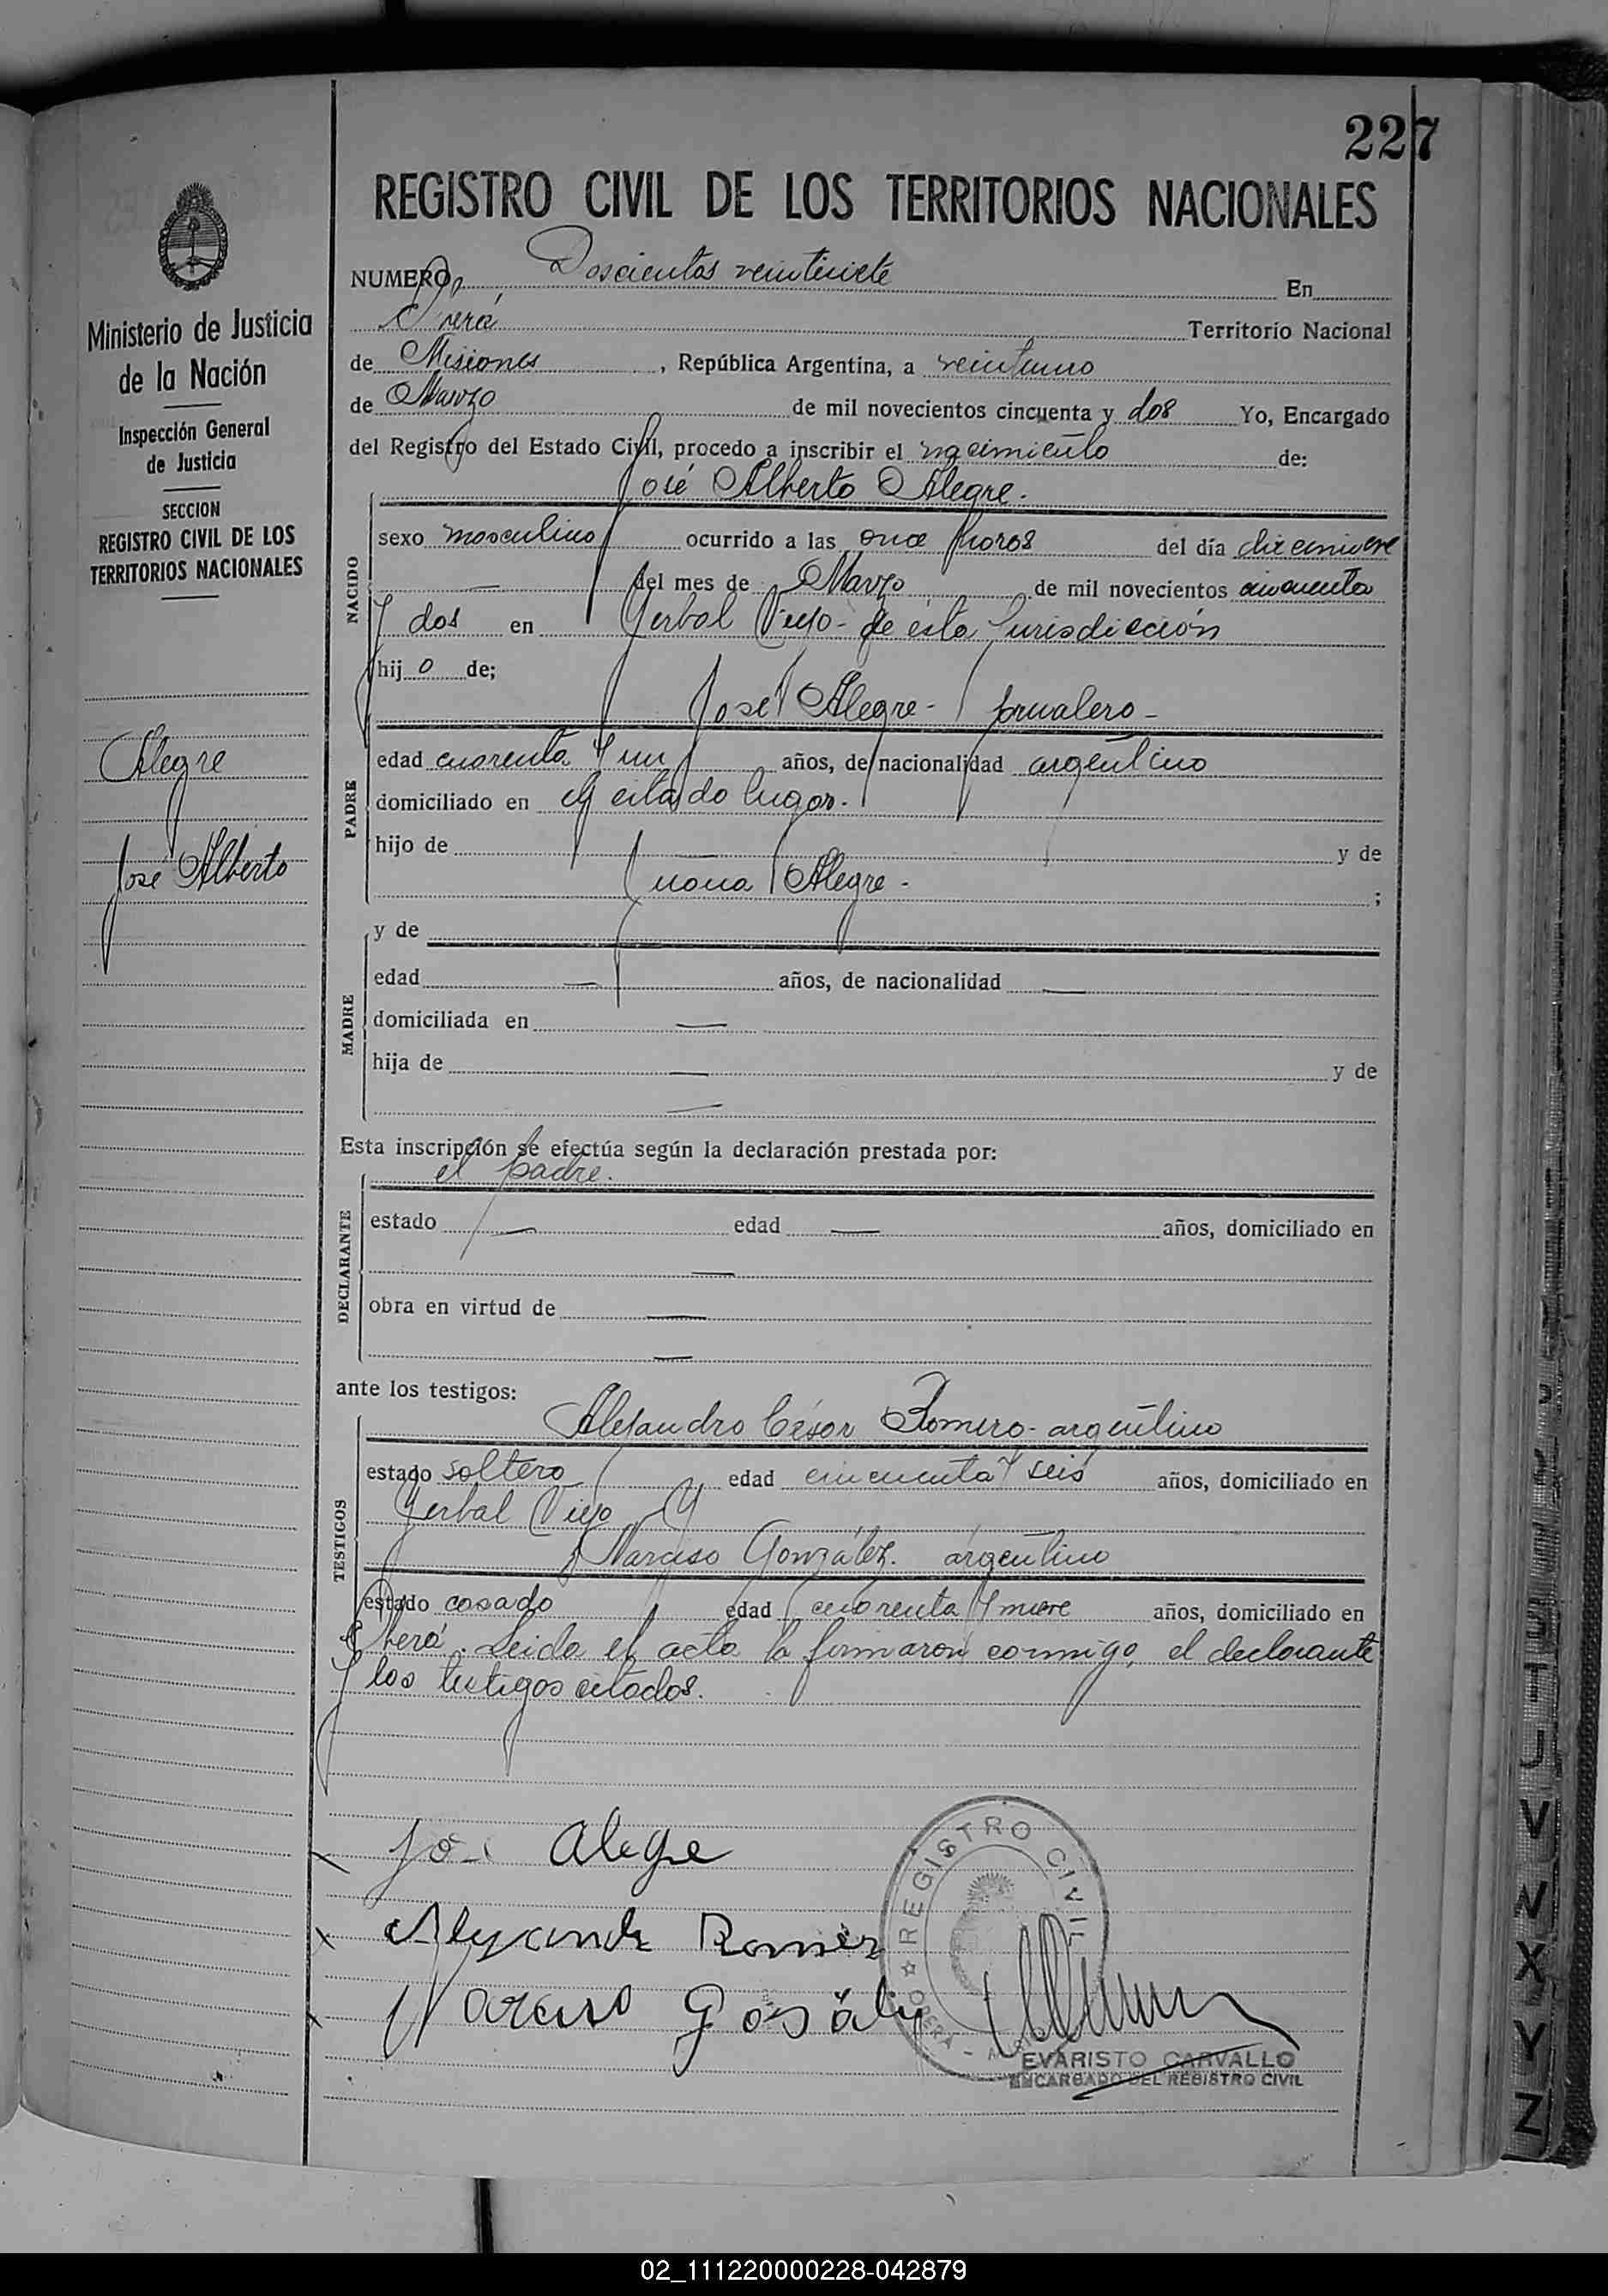 227
REGISTRO CIVIL DE LOS TERRITORIOS NACIONALES
Ministerio de Justicia
de la Nación
Inspección General
de Justicia
SECCION
REGISTRO CIVIL DE LOS
TERRITORIOS NACIONALES
Alegre
José Alberto
NUMERO Doscientos veintisiete En
Oberá Territorio Nacional
de Misiones, República Argentina, a veintiuno
de Marzo de mil novecientos cincuenta y dos Yo, Encargado
del Registro del Estado Civil, procedo a inscribir el nacimiento de:
José Alberto Alegre.
NACIDO
sexo masculino ocurrido a las once horas del día diecinueve
— del mes de Marzo de mil novecientos cincuenta
y dos en Yerbal Viejo - de esta Jurisdicción
hijo de;
José Alegre - jornalero -
PADRE
edad cuarenta y un años, de nacionalidad argentino
domiciliado en el citado lugar.
hijo de — y de
Juana Alegre - ;
MADRE
y de
edad — años, de nacionalidad —
domiciliada en —
hija de — y de
—
Esta inscripción se efectúa según la declaración prestada por:
el padre.
DECLARANTE
estado — edad — años, domiciliado en
—
obra en virtud de —
—
ante los testigos:
Alejandro César Romero - argentino
TESTIGOS
estado soltero edad cincuenta y seis años, domiciliado en
Yerbal Viejo y
Narciso González. argentino
estado casado edad cuarenta y nueve años, domiciliado en
Oberá. Leida el acta la firmaron conmigo, el declarante
y los testigos citados.
José Alegre
Alejandro Romero
Narciso Gosález
REGISTRO CIVIL
OBERÁ -
EVARISTO CARVALLO
ENCARGADO DEL REGISTRO CIVIL
J
V
W
X
Y
Z
02_111220000228-042879